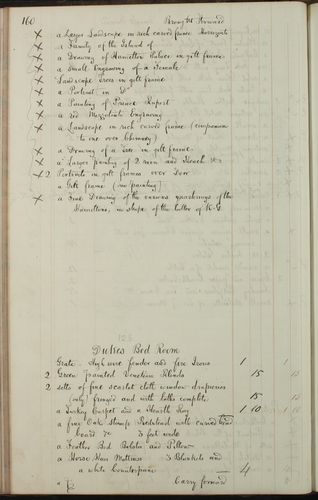 160 Brought Forward
x a Large Landscape in rich carved frame
x a Family of the Island of
x a Drawing of Hamilton Palace in gilt frame
x a Small Engraving of a Female
x Landscape Trees in gilt frame
x a Portrait in Do
x a Painting of Prince Rupert
x a Red Mezzotinto Engraving
x a Landscape in rich carved frame (companion
to one over Chimney)
x a Drawing of a Tree in gilt frame
x a Large painting of 2 men and
x 2 Portraits in gilt frames over Door
a Gilt frame (no painting)
x a Fine Drawing of the various quarterings of the
Hamiltons, in shape of the letter of
Dukes Bed Room
Grate. High wire fender and fire Irons 1
2 Green painted Venetian Blinds 15
2 setts of fine scarlet cloth window draperies
(only) fringed and with laths complete 15
a Turkey Carpet and a Hearth Rug 1 10
a fine Oak Stump Bedstead with carved head
board &c 3 feet wide
a Feather Bed Bolster and Pillow
a Horse Hair Mattress 3 Blankets and
a white Counterpane 4
Carry forward